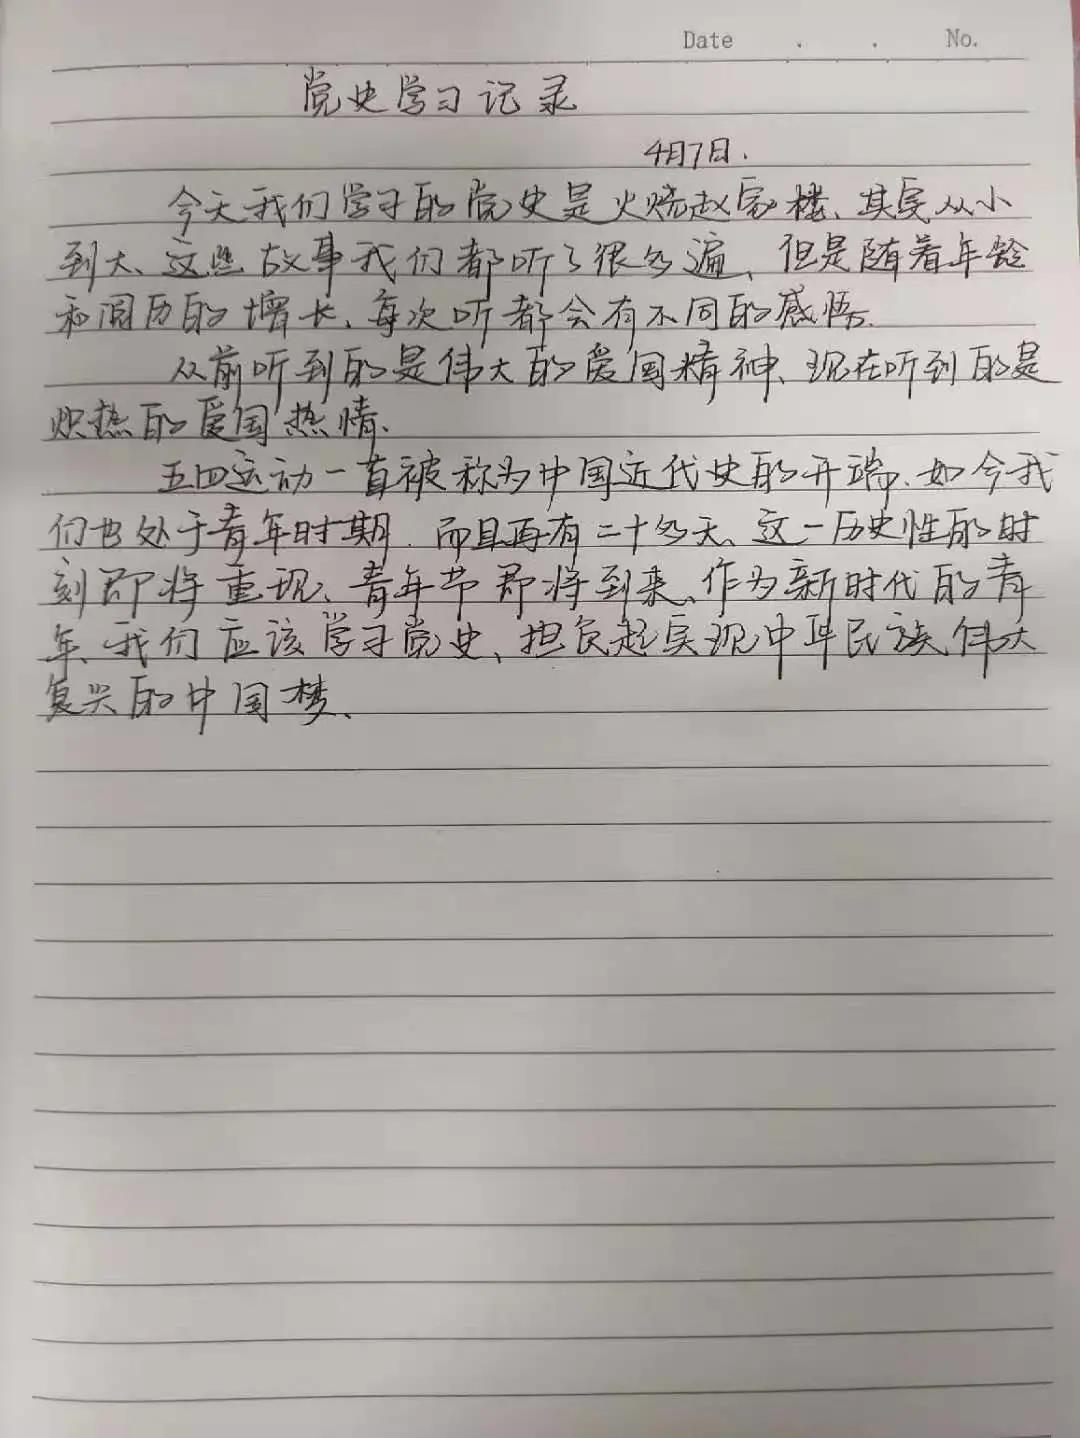 Date . . No.
党史学习记录
4月7日.
今天我们学习的党史是火烧赵家楼、其实从小
到大、这些故事我们都听了很多遍、但是随着年龄
和阅历的增长、每次听都会有不同的感悟.
从前听到的是伟大的爱国精神、现在听到的是
炽热的爱国热情.
五四运动一直被称为中国近代史的开端、如今我
们也处于青年时期.而且再有二十多天、这一历史性的时
刻即将重现、青年节即将到来、作为新时代的青
年、我们应该学习党史、担负起实现中华民族伟大
复兴的中国梦、